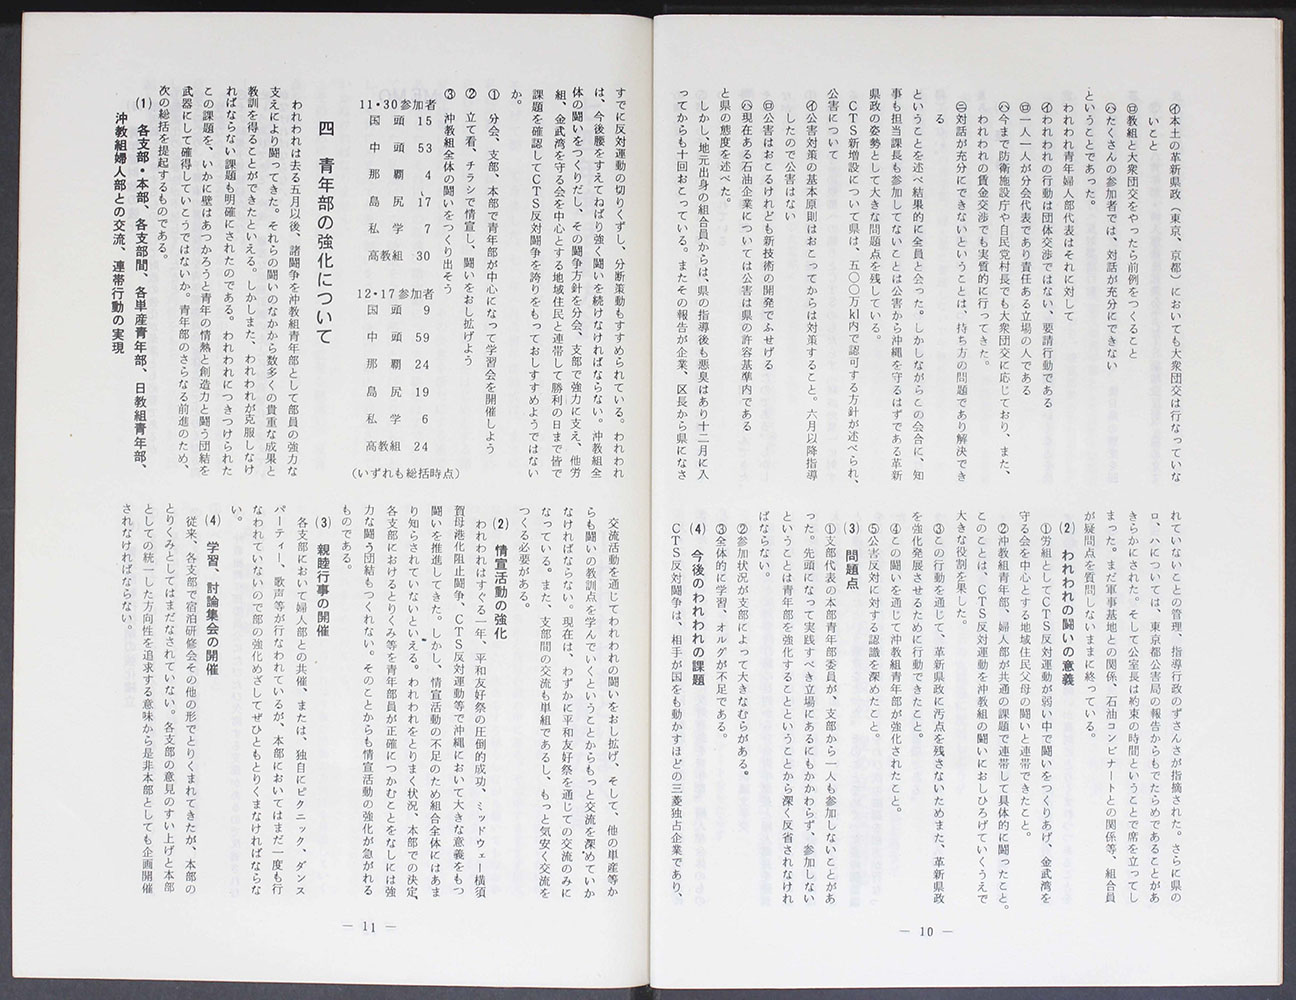 ㋑本土の革新県政(東京、京都)においても大衆団交は行なっていな
いこと
㋺教組と大衆団交をやったら前例をつくること
㋩たくさんの参加者では、対話が充分にできない
ということであった。
われわれ青年婦人部代表はそれに対して
㋑われわれの行動は団体交渉ではない、要請行動である
㋺一人一人が分会代表であり責任ある立場の人である
㋩今まで防衛施設庁や自民党村長でも大衆団交に応じており、また、
われわれの賃金交渉でも実質的に行ってきた。
㋥対話が充分にできないということは、持ち方の問題であり解決でき
る
ということを述べ結果的に全員と会った。しかしながらこの会合に、知
事も担当課長も参加してないことは公害から沖縄を守るはずである革新
県政の姿勢として大きな問題点を残している。
CTS新増設について県は、五〇〇万kl内で認可する方針が述べられ、
公害について
㋑公害対策の基本原則はおこってからは対策すること。六月以降指導
したので公害はない
㋺公害はおこるけれども新技術の開発でふせげる
㋩現在ある石油企業については公害は県の許容基準内である
と県の態度を述べた。
しかし、地元出身の組合員からは、県の指導後も悪臭はあり十二月に入
ってからも十回おこっている。またその報告が企業、区長から県になさ
れていないことの管理、指導行政のずさんさが指摘された。さらに県の
ロ、ハについては、東京都公害局の報告からもでたらめであることがあ
きらかにされた。そして公室長は約束の時間ということで席を立ってし
まった。まだ軍事基地との関係、石油コンビナートとの関係等、組合員
が疑問点を質問しないままに終っている。
(2) われわれの闘いの意義
①労組としてCTS反対運動が弱い中で闘いをつくりあげ、金武湾を
守る会を中心とする地域住民父母の闘いと連帯できたこと。
②沖教組青年部、婦人部が共通の課題で連帯して具体的に闘ったこと。
このことは、CTS反対運動を沖教組の闘いにおしひろげていくうえで
大きな役割を果した。
③この行動を通じて、革新県政に汚点を残さないためまた、革新県政
を強化発展させるために行動できたこと。
④この闘いを通じて沖教組青年部が強化されたこと。
⑤公害反対に対する認識を深めたこと。
(3) 問題点
①支部代表の本部青年部委員が、支部から一人も参加しないことがあ
った。先頭になって実践すべき立場にあるにもかかわらず、参加しない
ということは青年部を強化することということから深く反省されなけれ
ばならない。
②参加状況が支部によって大きなむらがある。
③全体的に学習、オルグが不足である。
(4) 今後のわれわれの課題
CTS反対闘争は、相手が国をも動かすほどの三菱独占企業であり、
— 10 —
すでに反対運動の切りくずし、分断策動もすすめられている。われわれ
は、今後腰をすえてねばり強く闘いを続けなければならない。沖教組全
体の闘いをつくりだし、その闘争方針を分会、支部で強力に支え、他労
組、金武湾を守る会を中心とする地域住民と連帯して勝利の日まで皆で
課題を確認してCTS反対闘争を誇りをもっておしすすめようではない
か。
① 分会、支部、本部で青年部が中心になって学習会を開催しよう
② 立て看、チラシで情宣し、闘いをおし拡げよう
③ 沖教組全体の闘いをつくり出そう
11・30参加者
国頭 15
中頭 53
那覇 4
島尻 17
私学 7
高教組 30
12・17参加者
国頭 9
中頭 59
那覇 24
島尻 19
私学 6
高教組 24
(いずれも総括時点)
四 青年部の強化について
われわれは去る五月以後、諸闘争を沖教組青年部として部員の強力な
支えにより闘ってきた。それらの闘いのなかから数多くの貴重な成果と
教訓を得ることができたといえる。しかしまた、われわれが克服しなけ
ればならない課題も明確にされたのである。われわれにつきつけられた
この課題を、いかに壁はあつかろうと青年の情熱と創造力と闘う団結を
武器にして確得していこうではないか。青年部のさらなる前進のため、
次の総括を提起するものである。
(1) 各支部・本部、各支部間、各単産青年部、日教組青年部、
沖教組婦人部との交流、連帯行動の実現
交流活動を通じてわれわれの闘いをおし拡げ、そして、他の単産等か
らも闘いの教訓点を学んでいくということからもっと交流を深めていか
なければならない。現在は、わずかに平和友好祭を通じての交流のみに
なっている。また、支部間の交流も単組であるし、もっと気安く交流を
つくる必要がある。
(2) 情宣活動の強化
われわれはすぐる一年、平和友好祭の圧倒的成功、ミッドウェー横須
賀母港化阻止闘争、CTS反対運動等で沖縄において大きな意義をもつ
闘いを推進してきた。しかし、情宣活動の不足のため組合全体にはあま
り知らされていないといえる。われわれをとりまく状況、本部での決定、
各支部におけるとりくみ等を青年部員が正確につかむことをなしには強
力な闘う団結もつくれない。そのことからも情宣活動の強化が急がれる
ものである。
(3) 親睦行事の開催
各支部において婦人部との共催、または、独自にピクニック、ダンス
パーティー、歌声等が行なわれているが、本部においてはまだ一度も行
なわれていないので部の強化めざしてぜひともとりくまなければならな
い。
(4) 学習、討論集会の開催
従来、各支部で宿泊研修会その他の形でとりくまれてきたが、本部の
とりくみとしてはまだなされていない。各支部の意見のすい上げと本部
としての統一した方向性を追求する意味から是非本部としても企画開催
されなければならない。
— 11 —